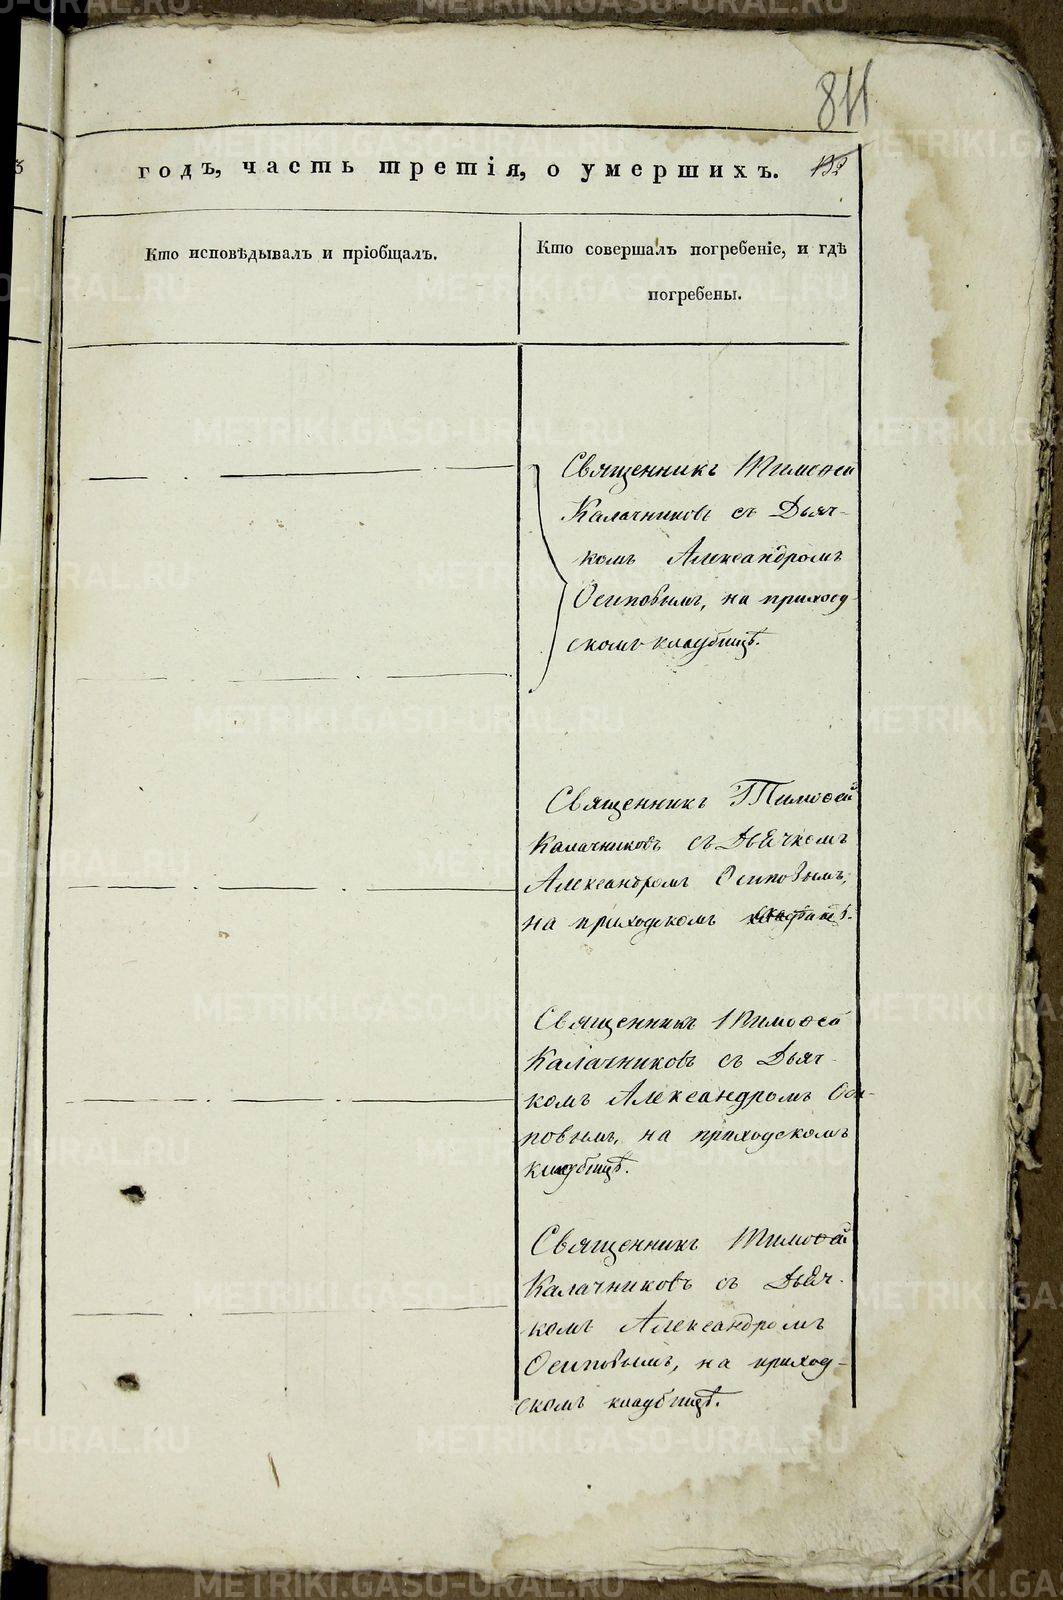 811
годъ, часть третія, о умершихъ. 132
Кто исповѣдывалъ и пріобщалъ.
Кто совершалъ погребеніе, и гдѣ
погребены.
Священникъ Тимоѳей
Калачниковъ съ Дьяч-
комъ Александромъ
Осиповымъ, на приход-
скомъ кладбищѣ.
Священникъ Тимоѳей
Калачниковъ съ Дьячкомъ
Александромъ Осиповымъ,
на приходскомъ
Священникъ Тимоѳей
Калачниковъ съ Дьяч-
комъ Александромъ Оси-
повымъ, на приходскомъ
кладбищѣ.
Священникъ Тимоѳей
Калачниковъ съ Дьяч-
комъ Александромъ
Осиповымъ, на приход-
скомъ кладбищѣ.
METRIKI.GASO-URAL.RU